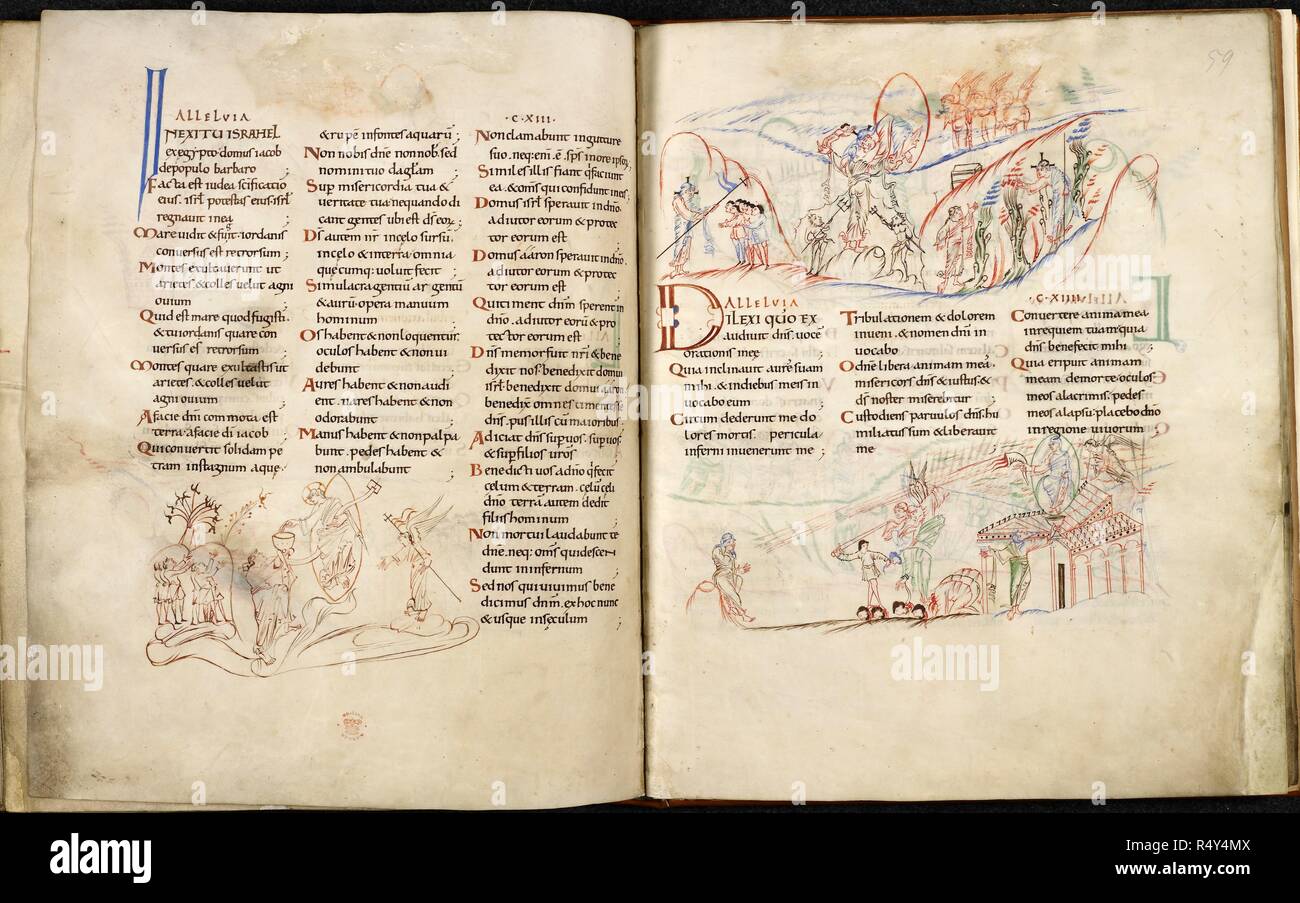 ALLELVIA
INEXITU ISRAHEL
exegypto domus iacob
depopulo barbaro ;
Facta est iudea scificatio
eius. isrl potestas eius. isrl
regnauit inea ;
Mare uidit & fugit. iordanis
conuersus est retrorsum ;
Montes exultauerunt ut
arietes. & colles uelut agni
ouium ;
Quid est mare quod fugisti.
& tu iordanis quare con
uersus es retrorsum ;
Montes quare exultastis ut
arietes. & colles uelut
agni ouium ;
Afacie dni commota est
terra. afacie di iacob ;
Qui conuertit solidam pe
tram instagnum aque.
& rupem infontes aquarū ;
Non nobis dne non nob. sed
nomini tuo da glam ;
Sup misericordia tua &
ueritate tua. nequando di
cant gentes ubi est ds eoȝ ;
Ds autem nr incelo sursū.
incelo & interra. omnia
quecumq: uoluit fecit ;
Simulacra gentiū argentū
& aurū. opera manuum
hominum ;
Os habent & non loquentur.
oculos habent & non ui
debunt ;
Aures habent & non audi
ent. nares habent & non
odorabunt ;
Manus habent & non palpa
bunt. pedes habent &
non ambulabunt ;
·C·XIII·
Non clamabunt ingutture
suo. neq: enī. ē. sps inore ipsoȝ
Similes illis fiant qui faciunt
ea. & oms qui confidunt ineis
Domus isrl sperauit indnō.
adiutor eorum & protec
tor eorum est ;
Domus aaron sperauit indnō.
adiutor eorum & protec
tor eorum est ;
Qui timent dnm sperent in
dno. adiutor eorū & pro
tector eorum est ;
Dns memor fuit nri & bene
dixit nos. benedixit domui
isrl. benedixit domui aaron
benedix omnes qui timent
dnm. pusillis cū maioribus
Adiciat dns sup uos. sup uos.
& sup filios uros ;
Benedicti uos adno qui fecit
celum & terram. celū celi
dno terrā autem dedit
filiis hominum ;
Non mortui laudabunt te
dne. neq: oms qui descen
dunt ininfernum ;
Sed nos qui uiuimus bene
dicimus dnm. ex hoc nunc
& usque insęculum ;
59
ALLELVIA
DILEXI QUO EX
audiuit dns. uocē
orationis meę
Quia inclinauit aurē suam
mihi. & indiebus meis in
uocabo eum ;
Circum dederunt me do
lores mortis. pericula
inferni inuenerunt me ;
Tribulationem & dolorem
inueni. & nomen dni in
uocabo ;
O dne libera animam meā.
misericors dns & iustus. &
ds noster miserebitur ;
Custodiens paruulos dns. hu
miliatus sum & liberauit
me
·C·XIIII·
Conuertere anima mea
inrequiem tuam. quia
dns benefecit mihi ;
Quia eripuit animam
meam demorte. oculos
meos alacrimis. pedes
meos alapsu. placebo dno
inregione uiuorum
alamy
Image ID: R4Y4MX
www.alamy.com